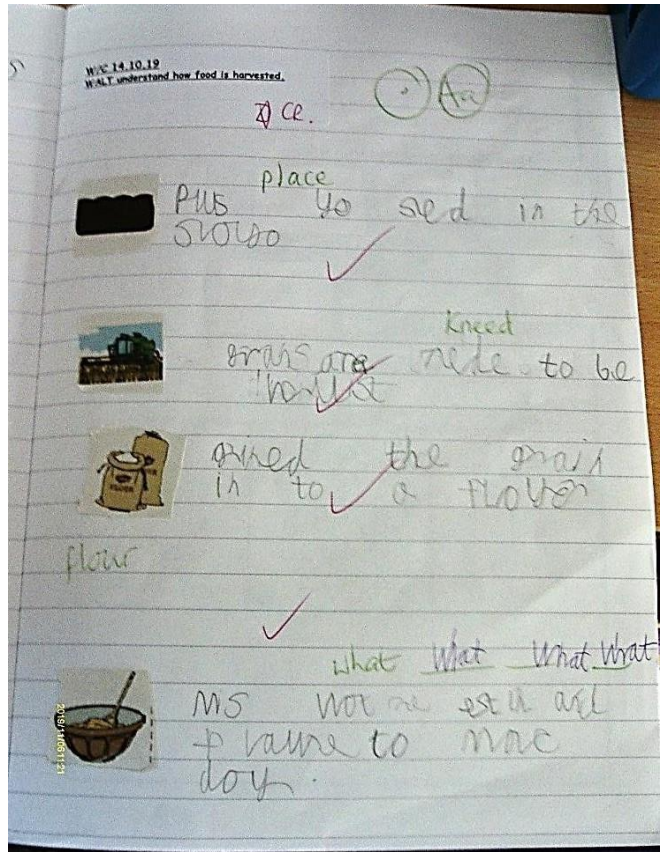 W/C 14.10.19
WALT understand how food is harvested.
CE.
Aa
place
Pus yo sed in the
Kneed
grais are nede to be
grined the grain
in to a flower
flour
what What What What
MS wot re est u and
to mac
doy.
2019/11/06 11:21